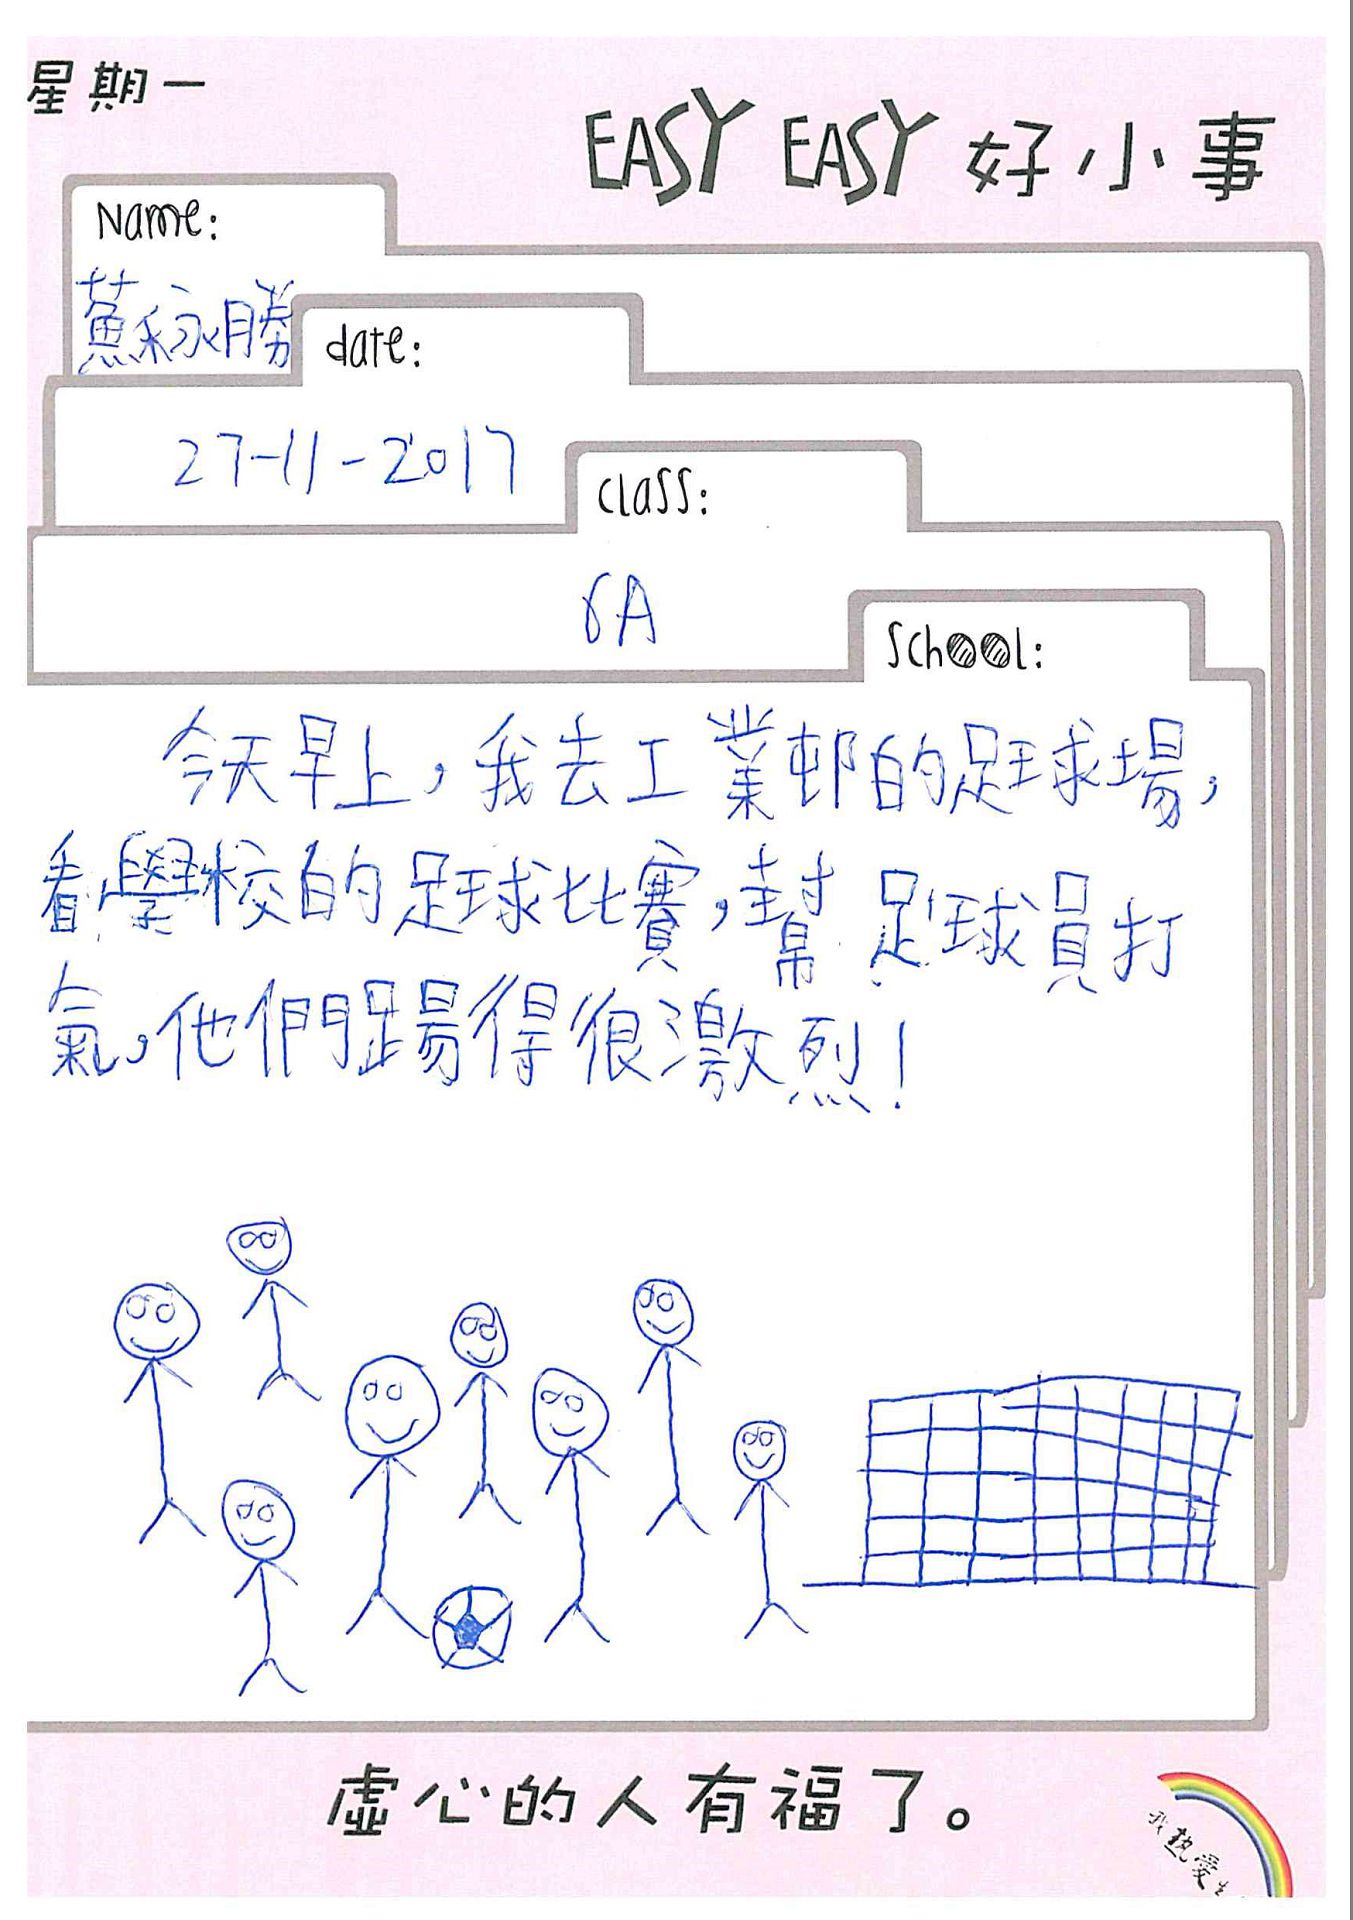 星期一
EASY EASY 好小事
Name:
蘇永勝
date:
27-11-2017
class:
6A
School:
今天早上，我去工業邨的足球場，
看學校的足球比賽，幫足球員打
氣，他們踢得很激烈！
虛心的人有福了。
我熱愛